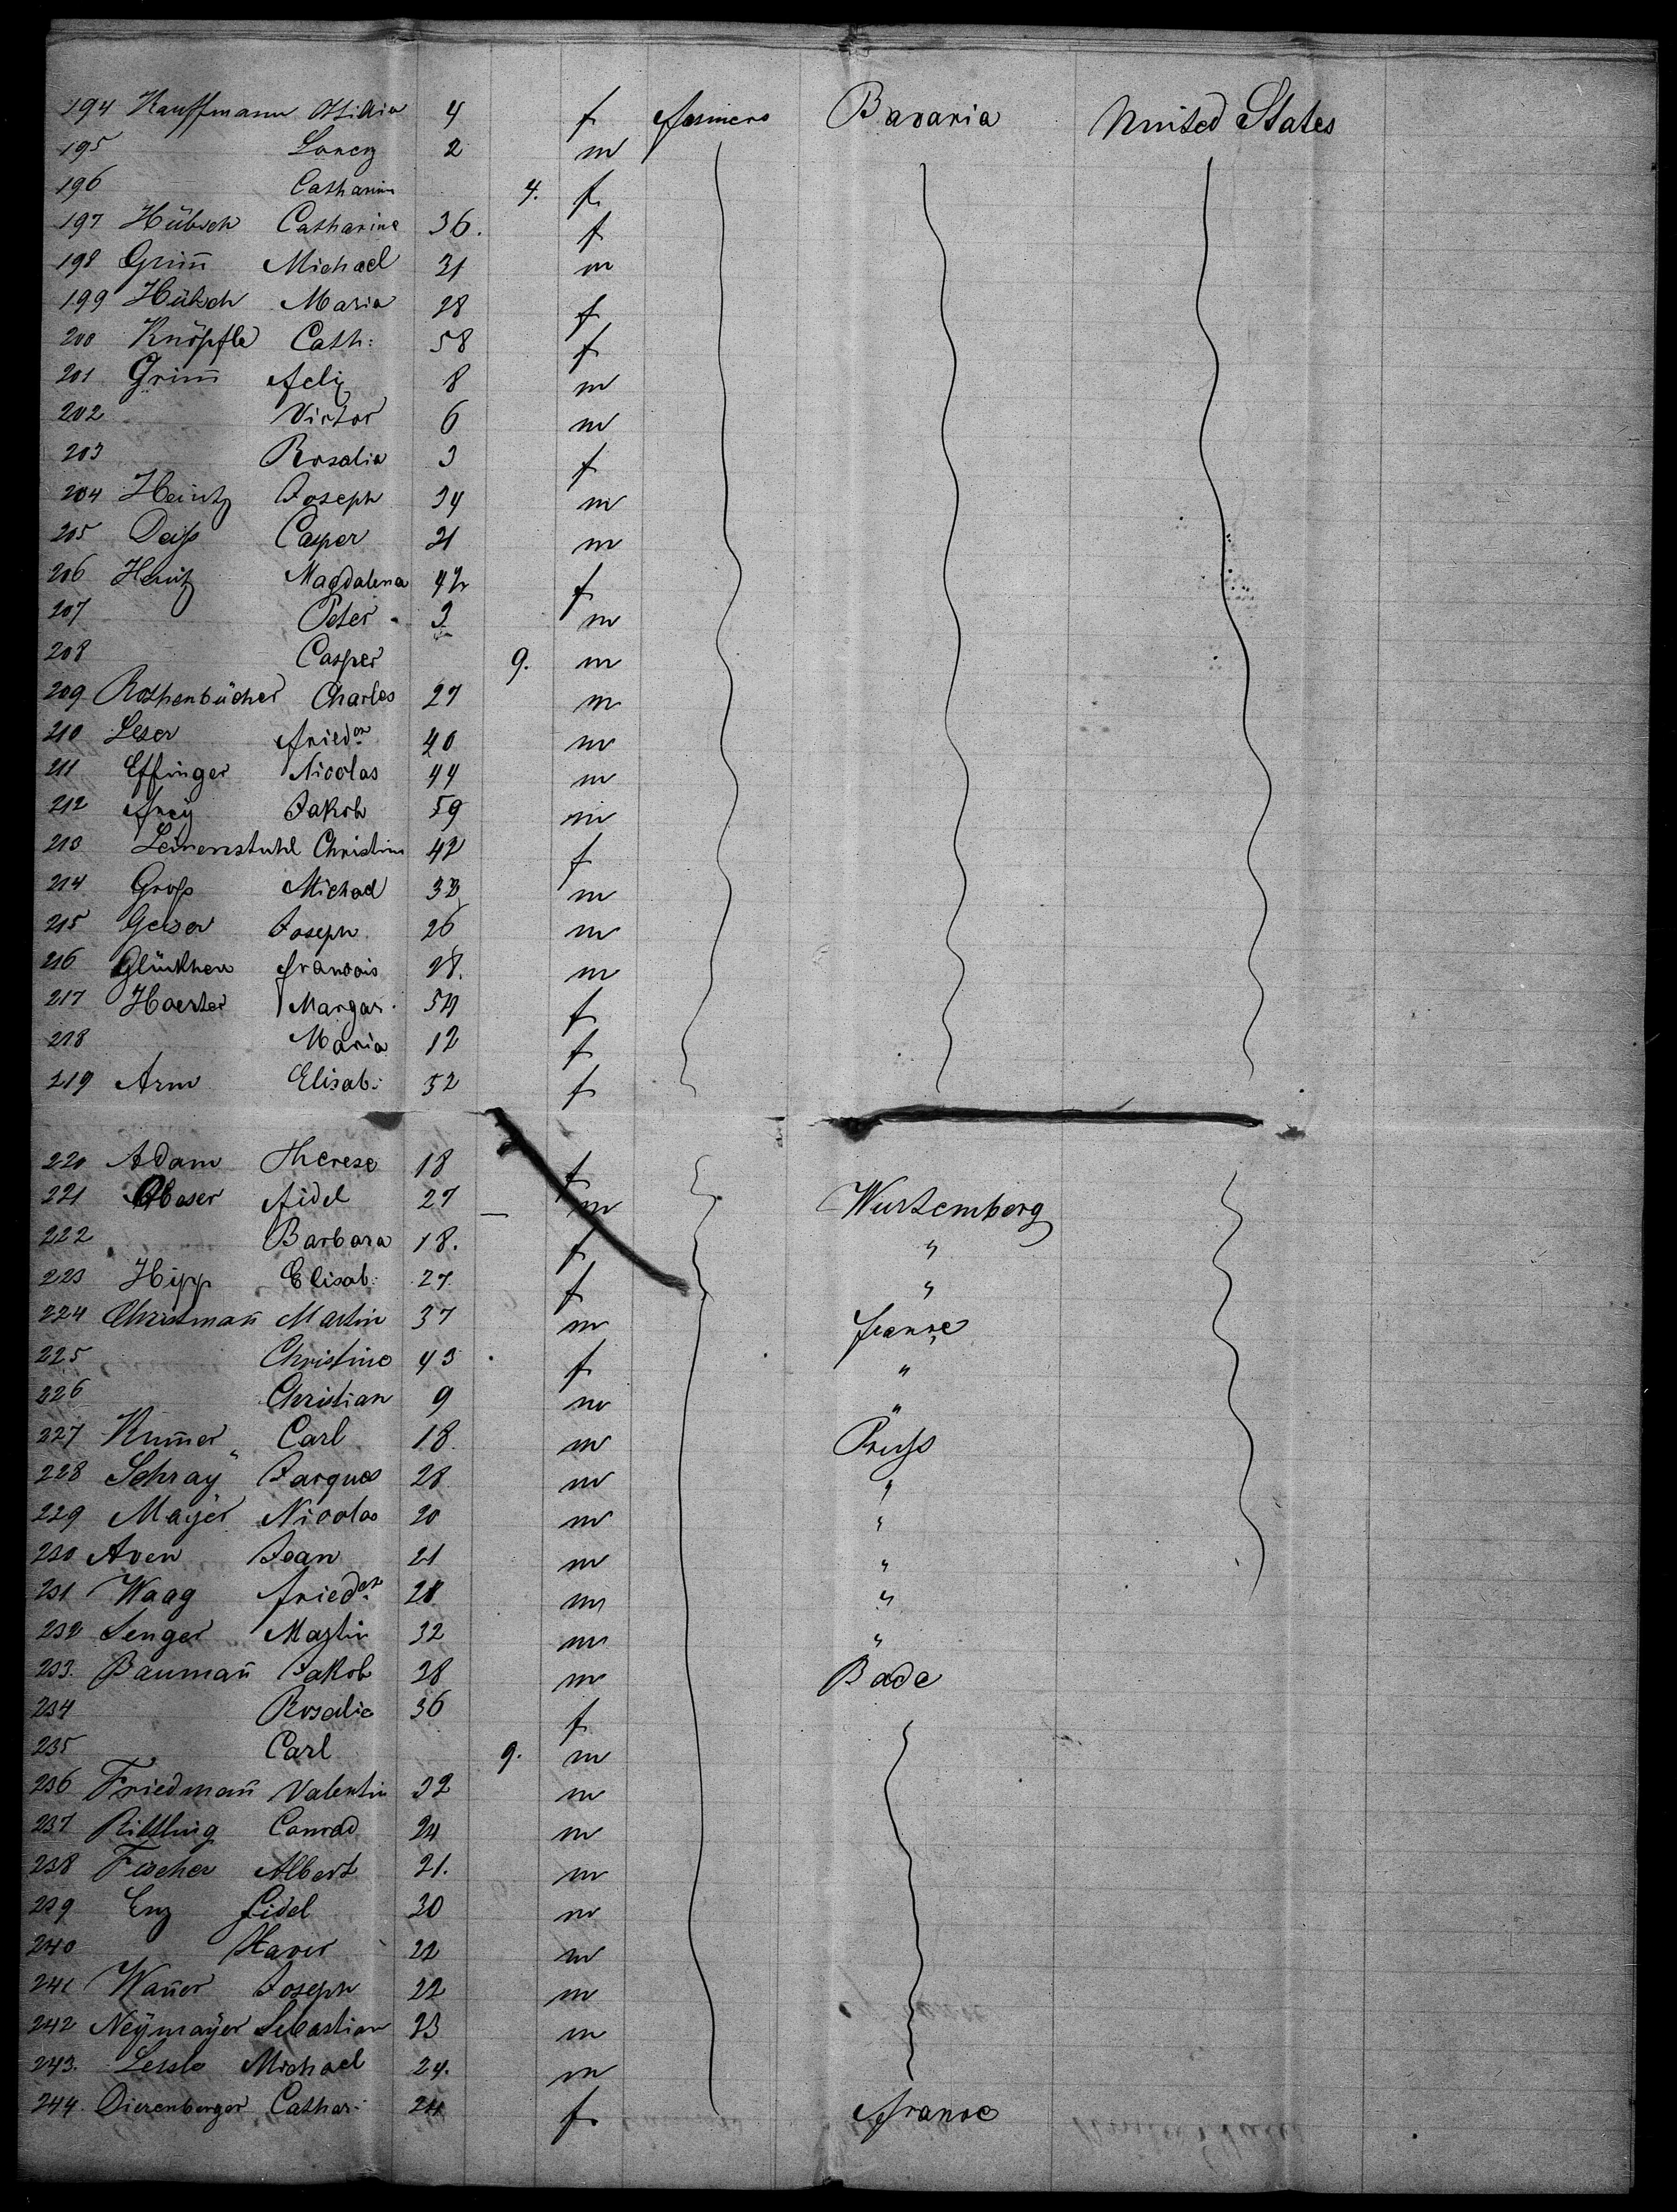 194 Kauffmann Ottilia 4 f farmers Bavaria United States
195 Lorenz 2 m
196 Catharine 4. f
197 Hübsch Catharine 36. f
198 Grim̅ Michael 31 m
199 Hübsch Maria 28 f
200 Knöpfle Cath: 58 f
201 Grim̅ Felix 8 m
202 Victor 6 m
203 Rosalia 3 f
204 Heintz Joseph 34 m
205 Deiß Casper 21 m
206 Heintz Magdalena 42 f
207 Peter 3 m
208 Casper 9. m
209 Rothenbücher Charles 27 m
210 Leser Friedr 40 m
211 Effinger Nicolas 44 m
212 Frey Jakob 59 m
213 Leinenstuhl Christine 42 f
214 Groß Michael 32 m
215 Geiser Joseph 26 m
216 Glückher francois 28. m
217 Haerter Margar. 54 f
218 Maria 12 f
219 Arm Elisab: 52 f
220 Adam Therese 18 f
221 Moser Fidel 27 m Wurtemberg
222 Barbara 18. f "
223 Hipp Elisab: 27. f "
224 Christman̅ Martin 37 m france
225 Christine 43 f "
226 Christian 9 m "
227 Kum̅er Carl 18 m Pruß
228 Schray Jacques 28 m "
229 Mayer Nicolas 20 m "
230 Aven Jean 21 m "
231 Waag Friedr 28 m "
232 Senger Martin 32 m "
233. Bauman̅ Jakob 38 m Bade
234 Rosalie 36 f
235 Carl 9. m
236 Friedman̅ Valentin 32 m
237 Rittling Conrad 24 m
238 Fischer Albert 21. m
239 Enz fidel 30 m
240 Xaver 22 m
241 Wan̅er Joseph 22 m
242 Neÿmaÿer Sebastian 23 m
243. Michael 24. m
244 Dierenberger Cathar: 24 f. France